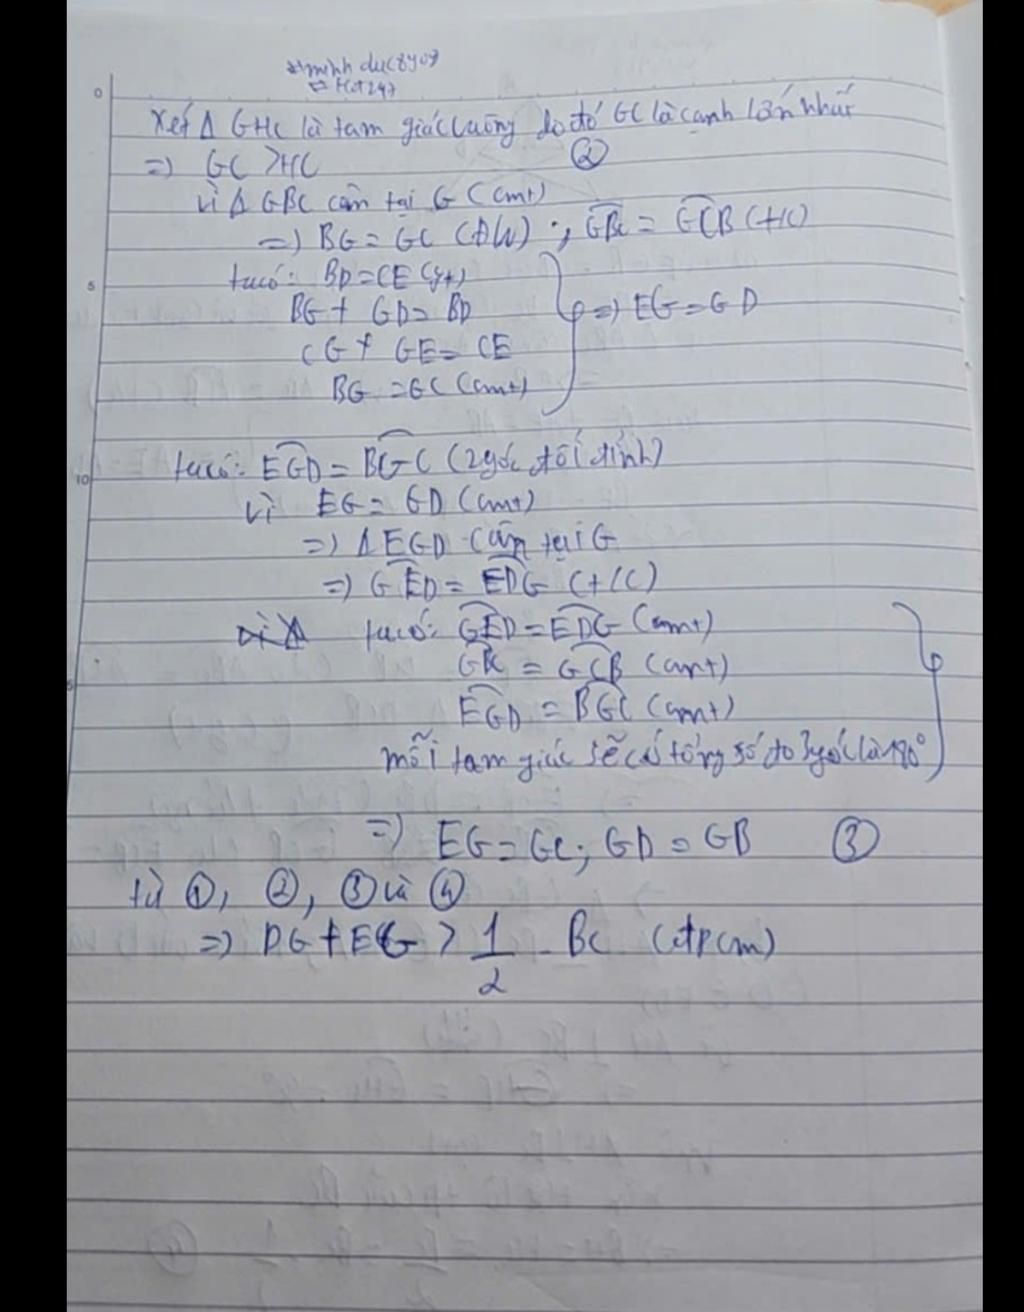 minhduc8y08
Hot247
Xét Δ GHC là tam giác vuông do đó GC là cạnh lớn nhất
=) GC > HC ②
Vì Δ GBC cân tại G (cmt)
=) BG = GC (ĐN) ; GBC = GCB (t/c)
ta có: BD = CE (gt)
BG + GD = BD
=) EG = GD
CG + GE = CE
BG = GC (cmt)
ta có: EGD = BGC (2 góc đối đỉnh)
vì EG = GD (cmt)
=) Δ EGD cân tại G
=) GED = EDG (t/c)
ta có: GED = EDG (cmt)
GBC = GCB (cmt)
EGD = BGC (cmt)
mỗi tam giác sẽ có tổng số đo 3 góc là 180°
=) EG = GC; GD = GB ③
từ ①, ②, ③ và ④
=) DG + EG > 1/2 . BC (đpcm)